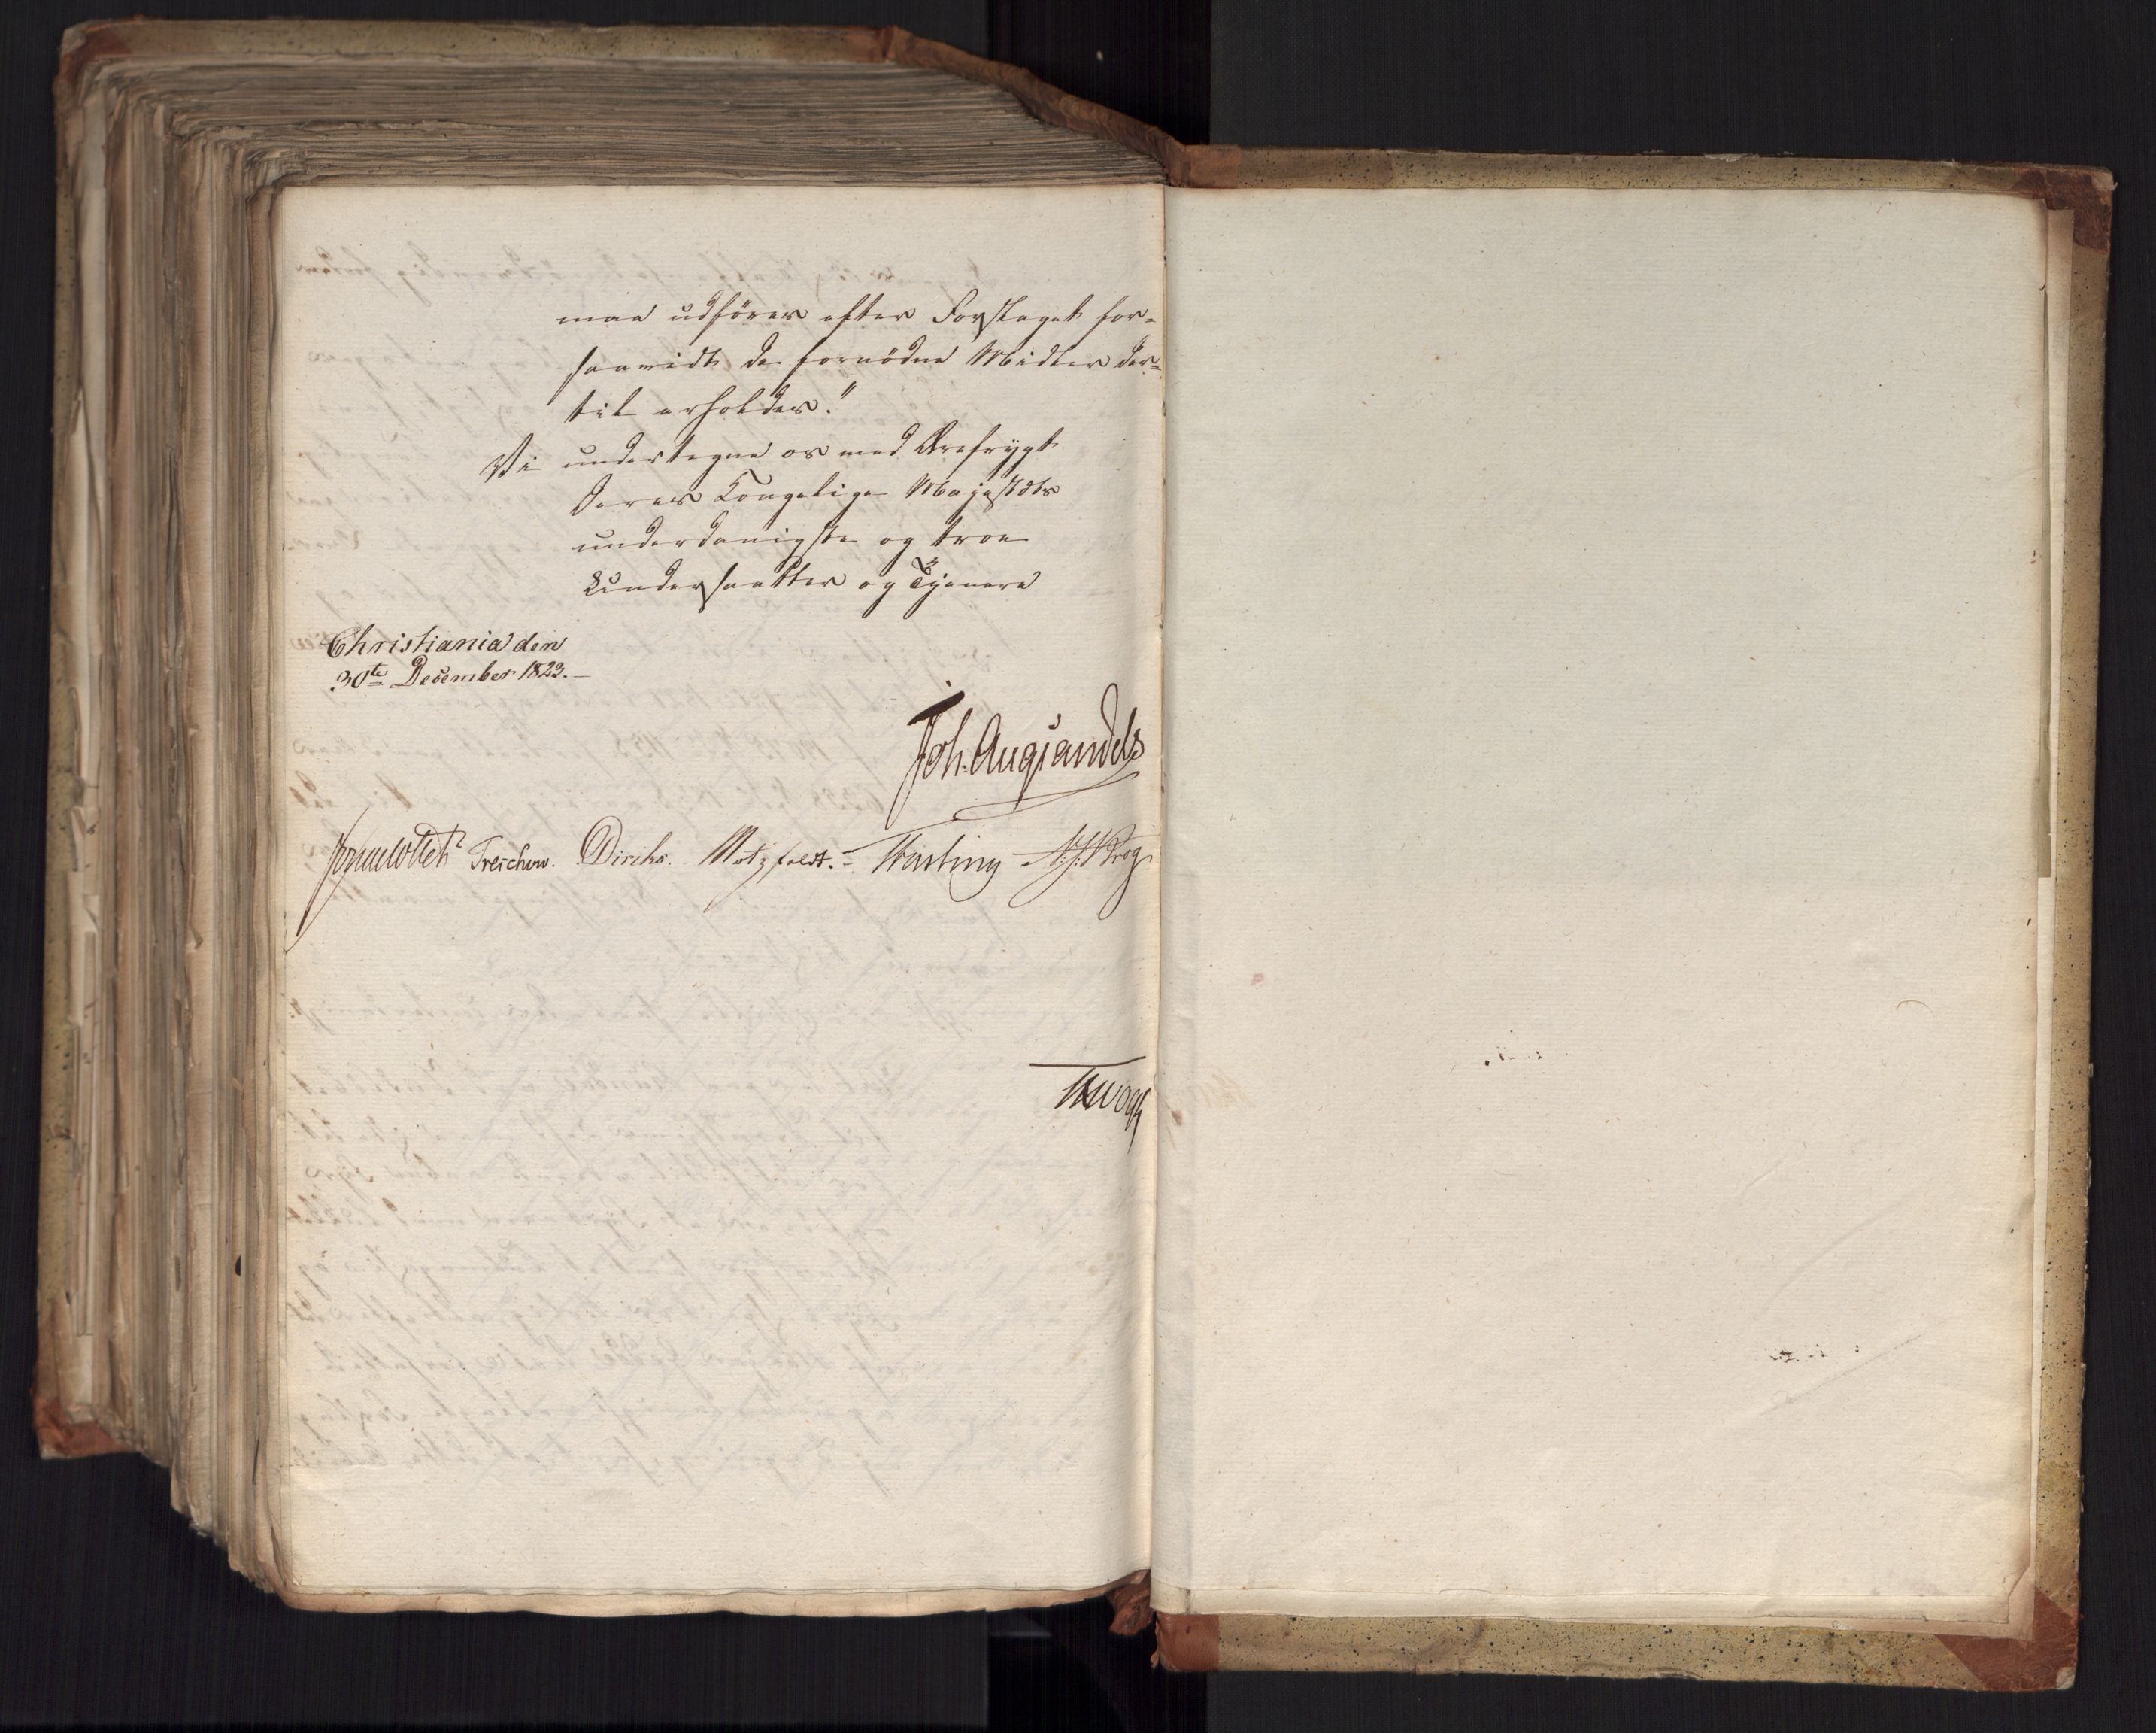 maa udføres efter Forslaget for-
saavidt de fornødne Midler der-
til erholdes."
Vi undertegne os med Ærefrygt
Deres Kongelige Majestæts
underdanigste og troe
Undersaatter og Tjenere
Christiania den
30te December 1823.
Joh. Aug. Sandels
Sommerfeldt Treschow. Diriks. Motzfeldt. Fasting N. J. Krog
Vogt